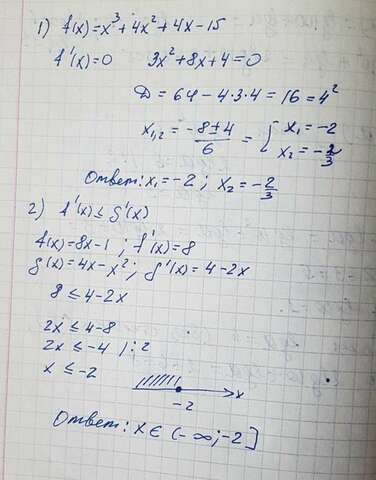 1) f(x)=x³+4x²+4x-15
f'(x)=0 3x²+8x+4=0
D=64-4·3·4=16=4²
x₁,₂=(-8±4)/6=[x₁=-2
x₂=-2/3
Ответ: x₁=-2; x₂=-2/3
2) f'(x)≤g'(x)
f(x)=8x-1; f'(x)=8
g(x)=4x-x²; g'(x)=4-2x
8≤4-2x
2x≤4-8
2x≤-4 |:2
x≤-2
-2 x
Ответ: x∈(-∞;-2]